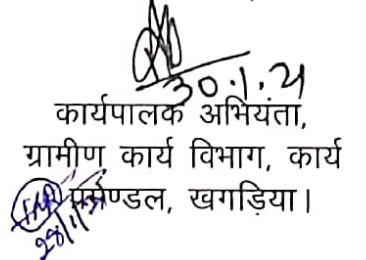 30.1.21
कार्यपालक अभियंता,
ग्रामीण कार्य विभाग, कार्य
प्रमण्डल, खगड़िया।